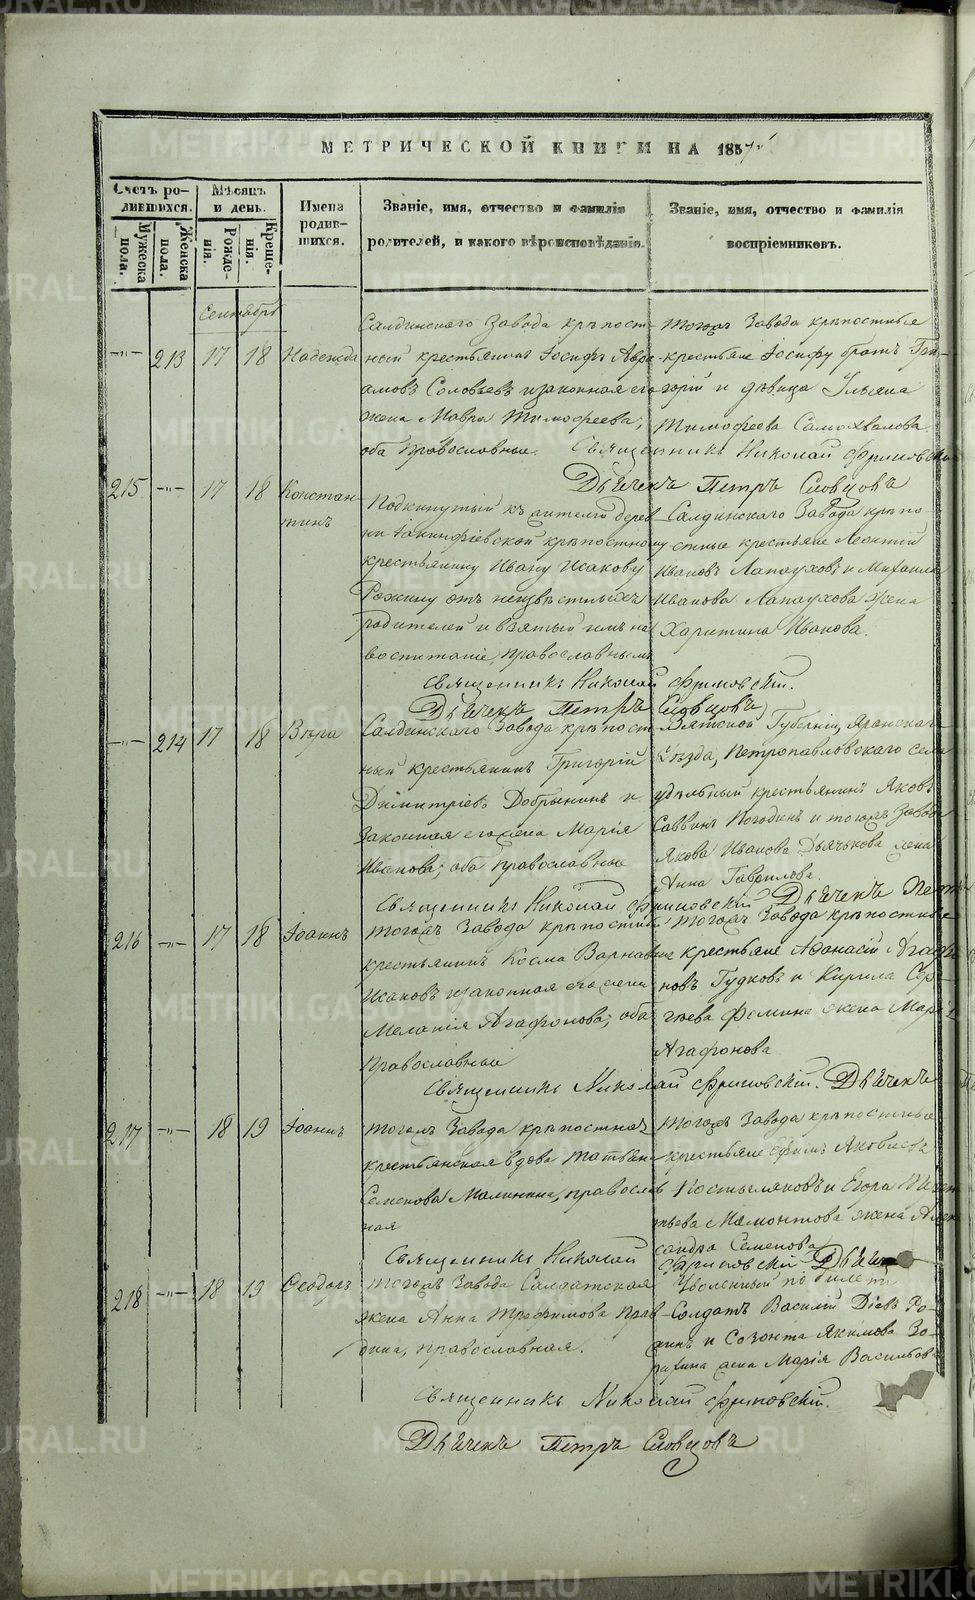 МЕТРИЧЕСКОЙ КНИГИ НА 1857
Счетъ ро-
дившихся.
Мужеска
пола.
Женска
пола.
Мѣсяцъ
и день.
Рожде-
нія.
Креще-
нія.
Имена
родив-
шихся.
Званіе, имя, отчество и фамилія
родителей, и какого вѣроисповѣданія.
Званіе, имя, отчество и фамилія
воспріемниковъ.
Сентябрь
213 17 18 Надежда
Салдинскаго Завода крѣпост-
ный крестьянинъ Іосифъ Авра-
амовъ Соловьевъ и законная его
жена Мавра Тимофеева,
оба православные.
Тогожъ Завода крѣпостные
крестьяне Іосифу братъ Гри-
горій и дѣвица Ульяна
Тимофеева Самохвалова.
Священникъ Николай
Дьячекъ Петръ Словцовъ
215 17 18 Констан-
тинъ
Подкинутый къ жителю дерев-
ни крѣпостному
крестьянину Ивану Исакову
отъ неизвѣстныхъ
родителей и взятый имъ на
воспитаніе, православнымъ
Салдинскаго Завода крѣпо-
стные крестьяне Леонтій
Ивановъ Лапауховъ и Михаила
Иванова Лапаухова жена
Харитина Иванова.
Священникъ Николай
Дьячекъ Петръ Словцовъ
214 17 18 Вѣра
Салдинскаго Завода крѣпост-
ный крестьянинъ Григорій
Димитріевъ Добрынинъ и
законная его жена Марія
Иванова; оба православные
Вятской Губерніи, Яранскаго
Уѣзда, Петропавловскаго села
удѣльный крестьянинъ Яковъ
Саввинъ Погодинъ и тогожъ Завода
Якова Иванова Дьячкова жена
Анна Гаврилова.
Священникъ Николай Дьячекъ Петръ
216 17 18 Іоаннъ
Тогожъ Завода крѣпостный
крестьянинъ Косма Варнавинъ
Исаковъ и законная его жена
Меланія Агафонова; оба
православные
Тогожъ Завода крѣпостные
крестьяне Афанасій Агафо-
новъ Гудковъ и Кирила Сер-
гѣева Фомина жена Марія
Агафонова
Священникъ Николай Дьячекъ
217 18 19 Іоаннъ
Тогожъ Завода крѣпостная
крестьянская вдова Татьяна
Семенова Малинина, православ-
ная
Тогожъ Завода крѣпостные
крестьяне Ефимъ Яковлевъ
Костыляковъ и Егора
Мамонтова жена Алек-
сандра Семенова
Священникъ Николай Дьячекъ
218 18 19 Феодоръ
Тогожъ Завода Салдатская
жена Анна Трофимова
православная.
Уволенный по билету
Солдатъ Василій
и Созонта Якимова
жена Марія Васильева
Священникъ Николай
Дьячекъ Петръ Словцовъ
METRIKI.GASO-URAL.RU